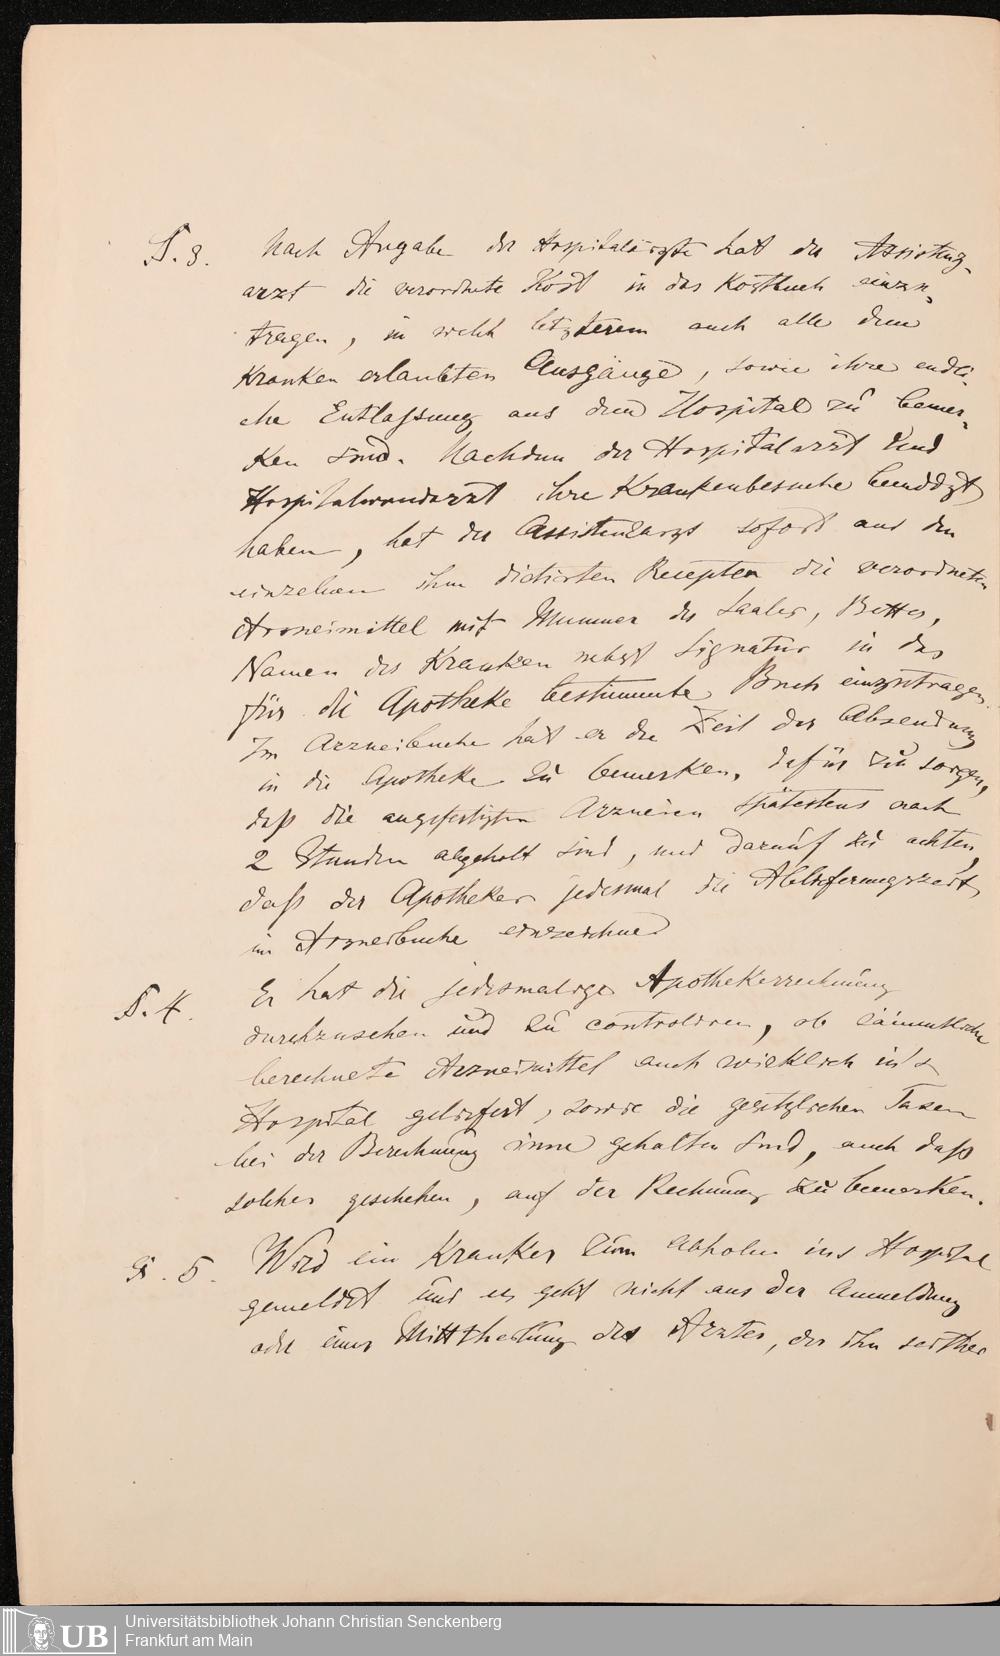 §. 3. Nach Angabe der Hospitalärzte hat der Assistenz-
arzt die verordnete Kost in das Kostbuch einzu-
tragen, in welch letzterem auch alle dem
Kranken erlaubten Ausgänge, sowie ihre endli-
che Entlaßung aus dem Hospital zu bemer-
ken sind. Nachdem der Hospitalarzt und
Hospitalwundarzt ihre Krankenbesuche beendigt
haben, hat der Assistenzarzt sofort aus den
einzelnen ihm dictirten Recepten die verordneten
Arzneimittel mit Nummer des Saales, Bettes,
Namen des Kranken nebst Signatur in das
für die Apotheke bestimmte Buch einzutragen.
Im Arzneibuche hat er die Zeit der Absendung
in die Apotheke zu bemerken, dafür zu sorgen,
daß die angefertigten Arzneien spätestens nach
2 Stunden abgeholt sind, und darauf zu achten,
daß der Apotheker jedesmal die Ablieferungszeit
im Arzneibuche einzeichne
§. 4. Er hat die jedesmalige Apothekerrechnung
durchzusehen und zu controliren, ob sämmtliche
berechnete Arzneimittel auch wirklich in's
Hospital geliefert, sowie die gesetzlichen Taxen
bei der Berechnung inne gehalten sind, auch daß
solches geschehen, auf der Rechnung zu bemerken.
§. 5. Wird ein Kranker zum Abholen ins Hospital
gemeldet und es geht nicht aus der Anmeldung
oder einer Mittheilung des Arztes, der ihn seither
UB
Universitätsbibliothek Johann Christian Senckenberg
Frankfurt am Main